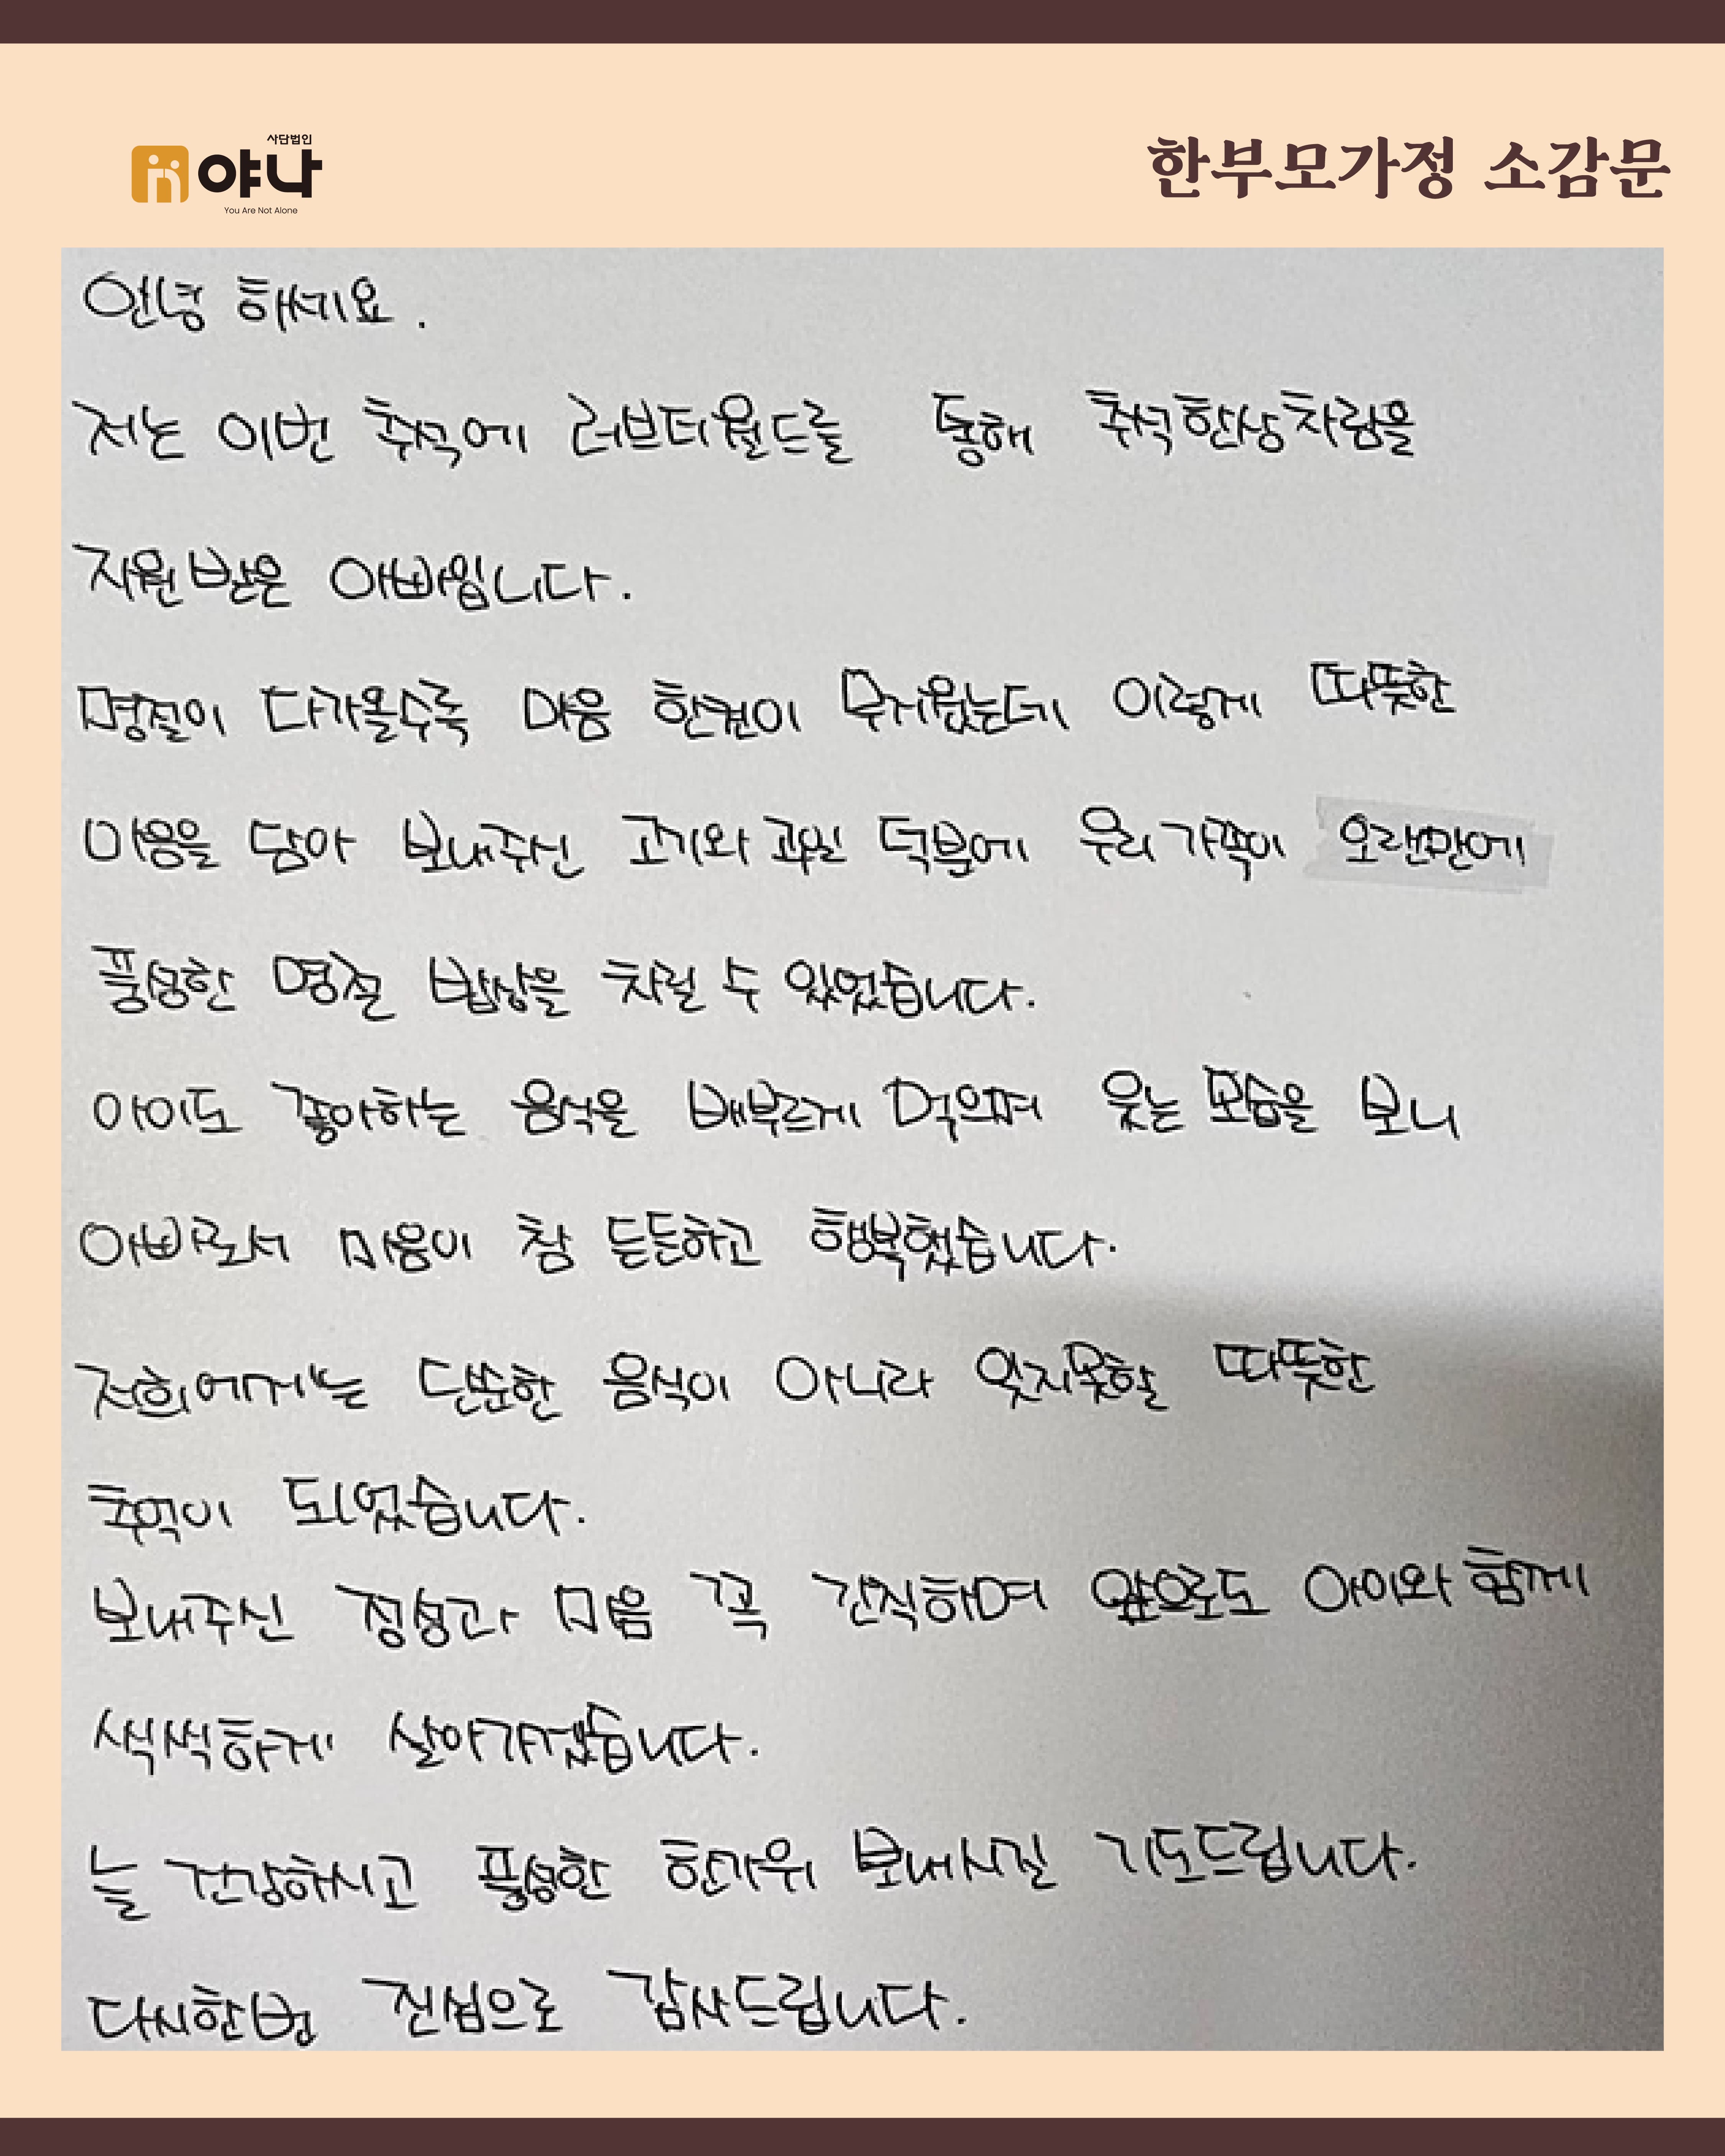 사단법인
야나
You Are Not Alone
한부모가정 소감문
안녕 하세요.
저는 이번 추석에 러브더월드를 통해 추석한상차림을
지원받은 아빠입니다.
명절이 다가올수록 마음 한켠이 무거웠는데 이렇게 따뜻한
마음을 담아 보내주신 고기와 과일 덕분에 우리가족이 오랜만에
풍성한 명절 밥상을 차릴 수 있었습니다.
아이도 좋아하는 음식을 배부르게 먹으며 웃는 모습을 보니
아빠로서 마음이 참 든든하고 행복했습니다.
저희에게는 단순한 음식이 아니라 잊지못할 따뜻한
추억이 되었습니다.
보내주신 정성과 마음 꼭 간직하며 앞으로도 아이와 함께
씩씩하게 살아가겠습니다.
늘 건강하시고 풍성한 한가위 보내시길 기도드립니다.
다시한번 진심으로 감사드립니다.